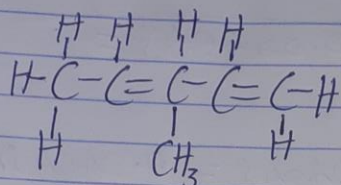 H H H H
H-C-C=C-C=C-H
H CH₃ H